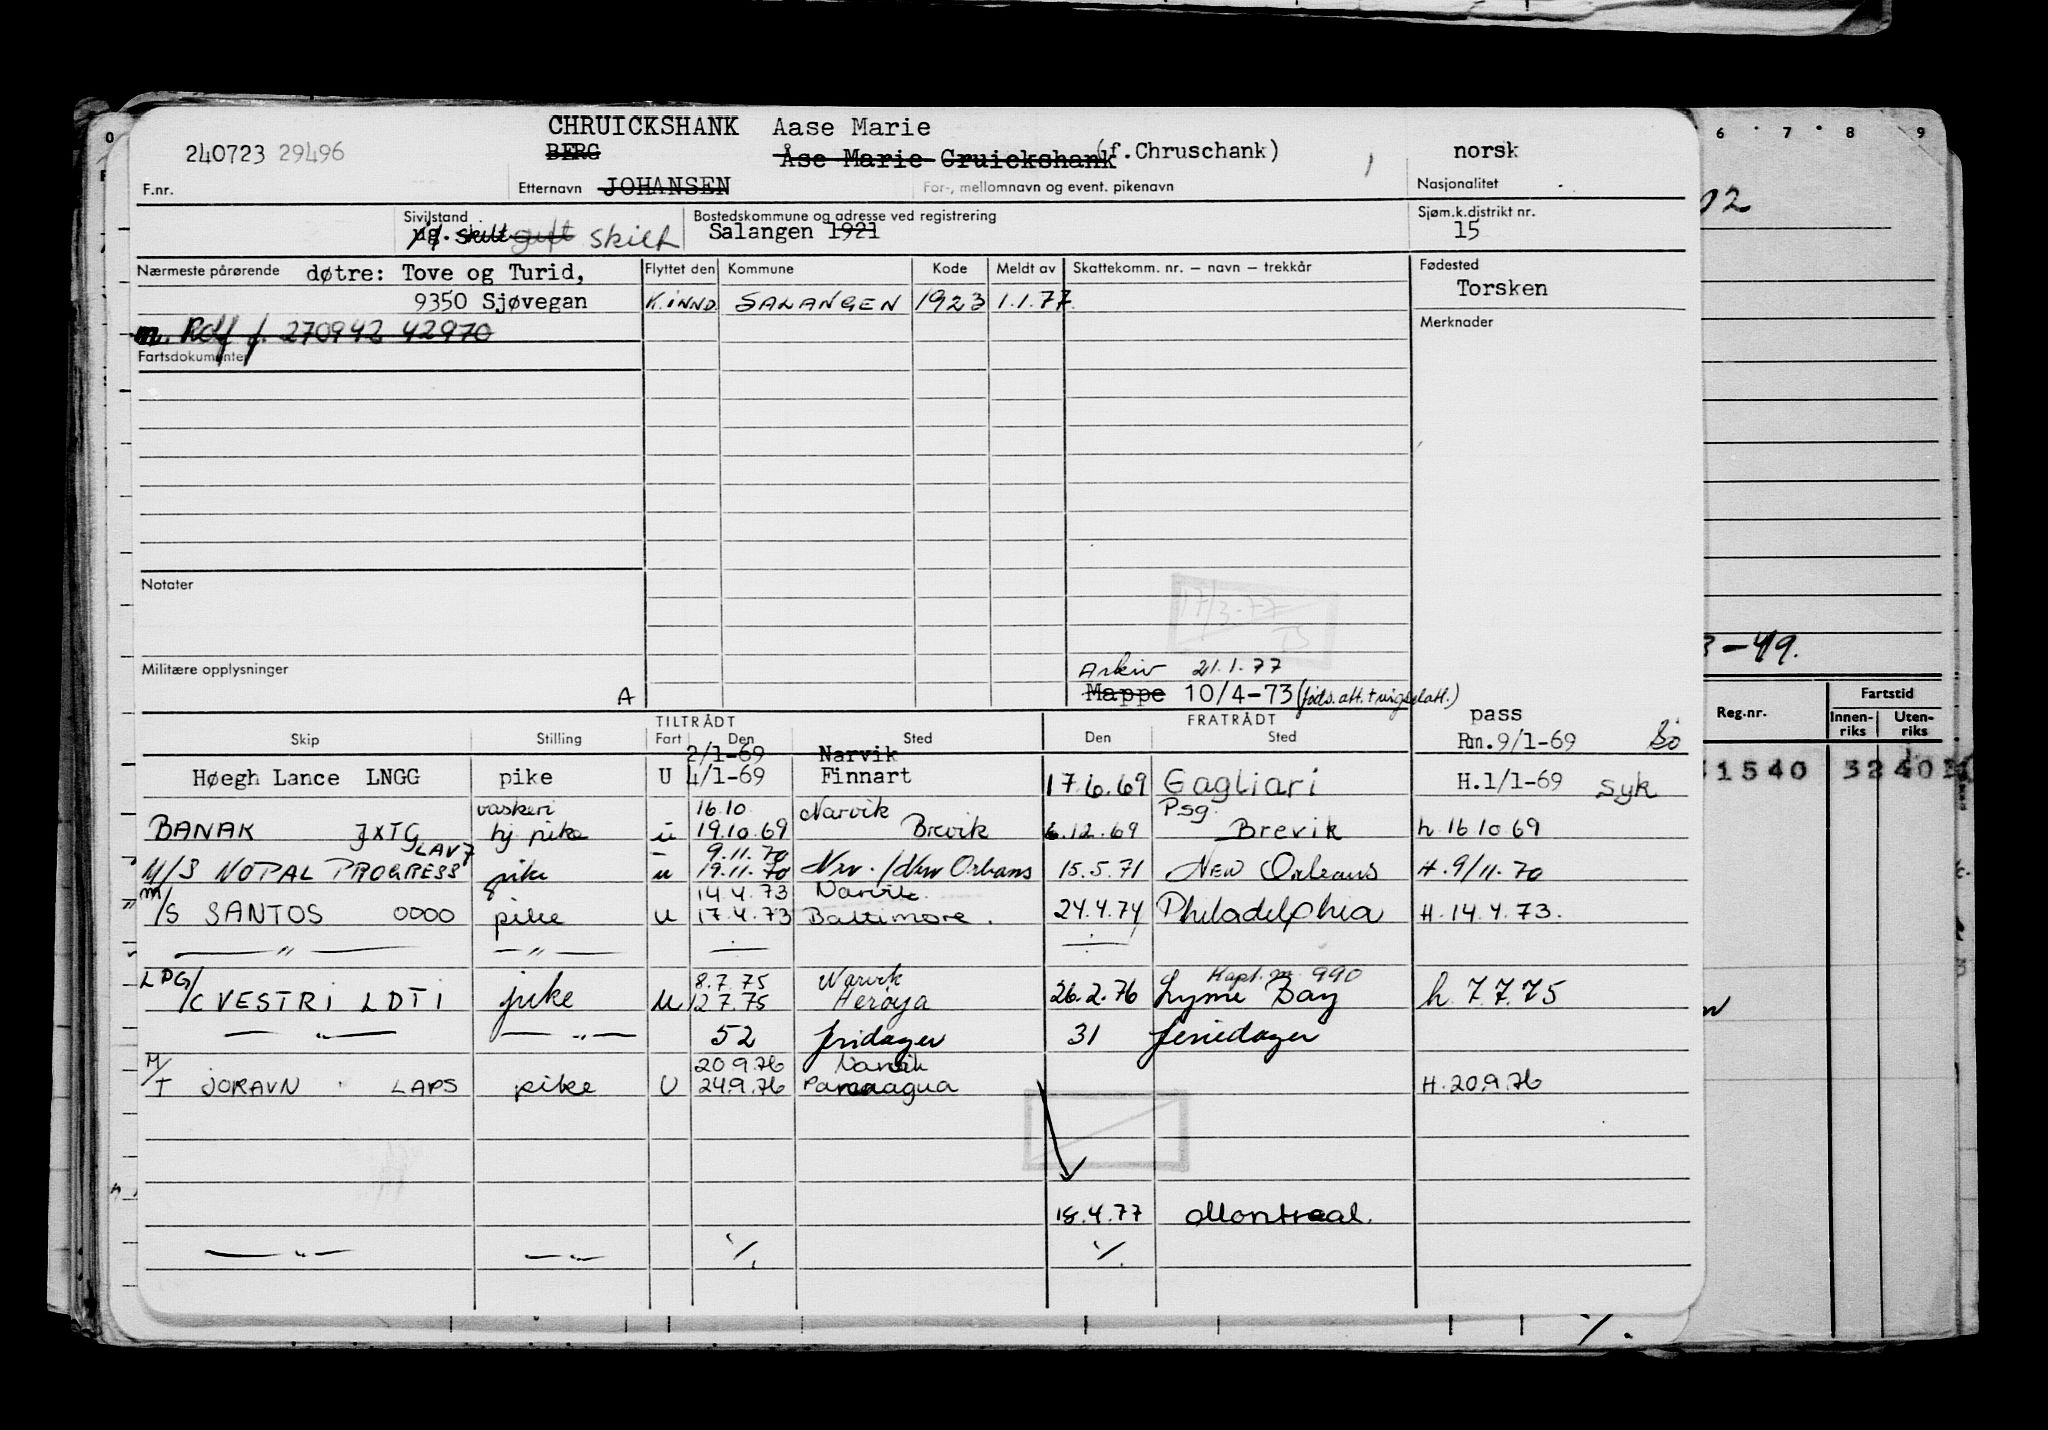 CHRUICKSHANK Aase Marie
240723 29496 BERG Åse Marie Cruickshank (f.Chruschank) norsk
F.nr. Etternavn JOHANSEN For-, mellomnavn og event. pikenavn Nasjonalitet
Sivilstand Bostedskommune og adresse ved registrering Sjøm.k.distrikt nr.
ug. skilt gift skilt Salangen 1921 15
Nærmeste pårørende døtre: Tove og Turid, Flyttet den Kommune Kode Meldt av Skattekomm. nr. – navn – trekkår Fødested
Torsken
9350 Sjøvegan K.innd. SALANGEN 1923 1.1.77
m. Rolf f. 270942 42970 Merknader
Fartsdokumenter
Notater
17/3-77
TS
Militære opplysninger Arkiv 21.1.77
A Mappe 10/4-73
TILTRÅDT FRATRÅDT pass
Skip Stilling Fart Den Sted Den Sted Rm.9/1-69
2/1-69 Narvik
Høegh Lance LNGG pike U 4/1-69 Finnart 17.6.69 Cagliari H.1/1-69 syk
vaskeri 16.10 Narvik Psg.
BANAK JXTG hj. pike u 19.10.69 Brevik 6.12.69 Brevik h.16 10 69
LAV7 9.11.70
M/S NOPAL PROGRESS pike u 19.11.70 Nrv./New Orleans 15.5.71 New Orleans H.9/11.70
14.4.73 Narvik
m/S SANTOS 0000 pike U 17.4.73 Baltimore. 24.4.74 Philadelphia H.14.4.73.
— " — — " — ÷ ÷
8.7.75 Narvik Kapt. m. 990
LPG/C VESTRI LDTI pike U 12.7.75 Herøya 26.2.76 Lyme Bay h.7.7.75
— " — — " — 52 fridager 31 feriedager
20.9.76 Narvik
M/T JORAVN LAPS pike U 24.9.76 Paranagua H.20.9.76
18.4.77 Montreal.
— " — — " — ·/. ·/.
0
6 7 8 9
02
3-49.
Reg.nr. Fartstid
Innenriks Utenriks
1540 32 40
·/.